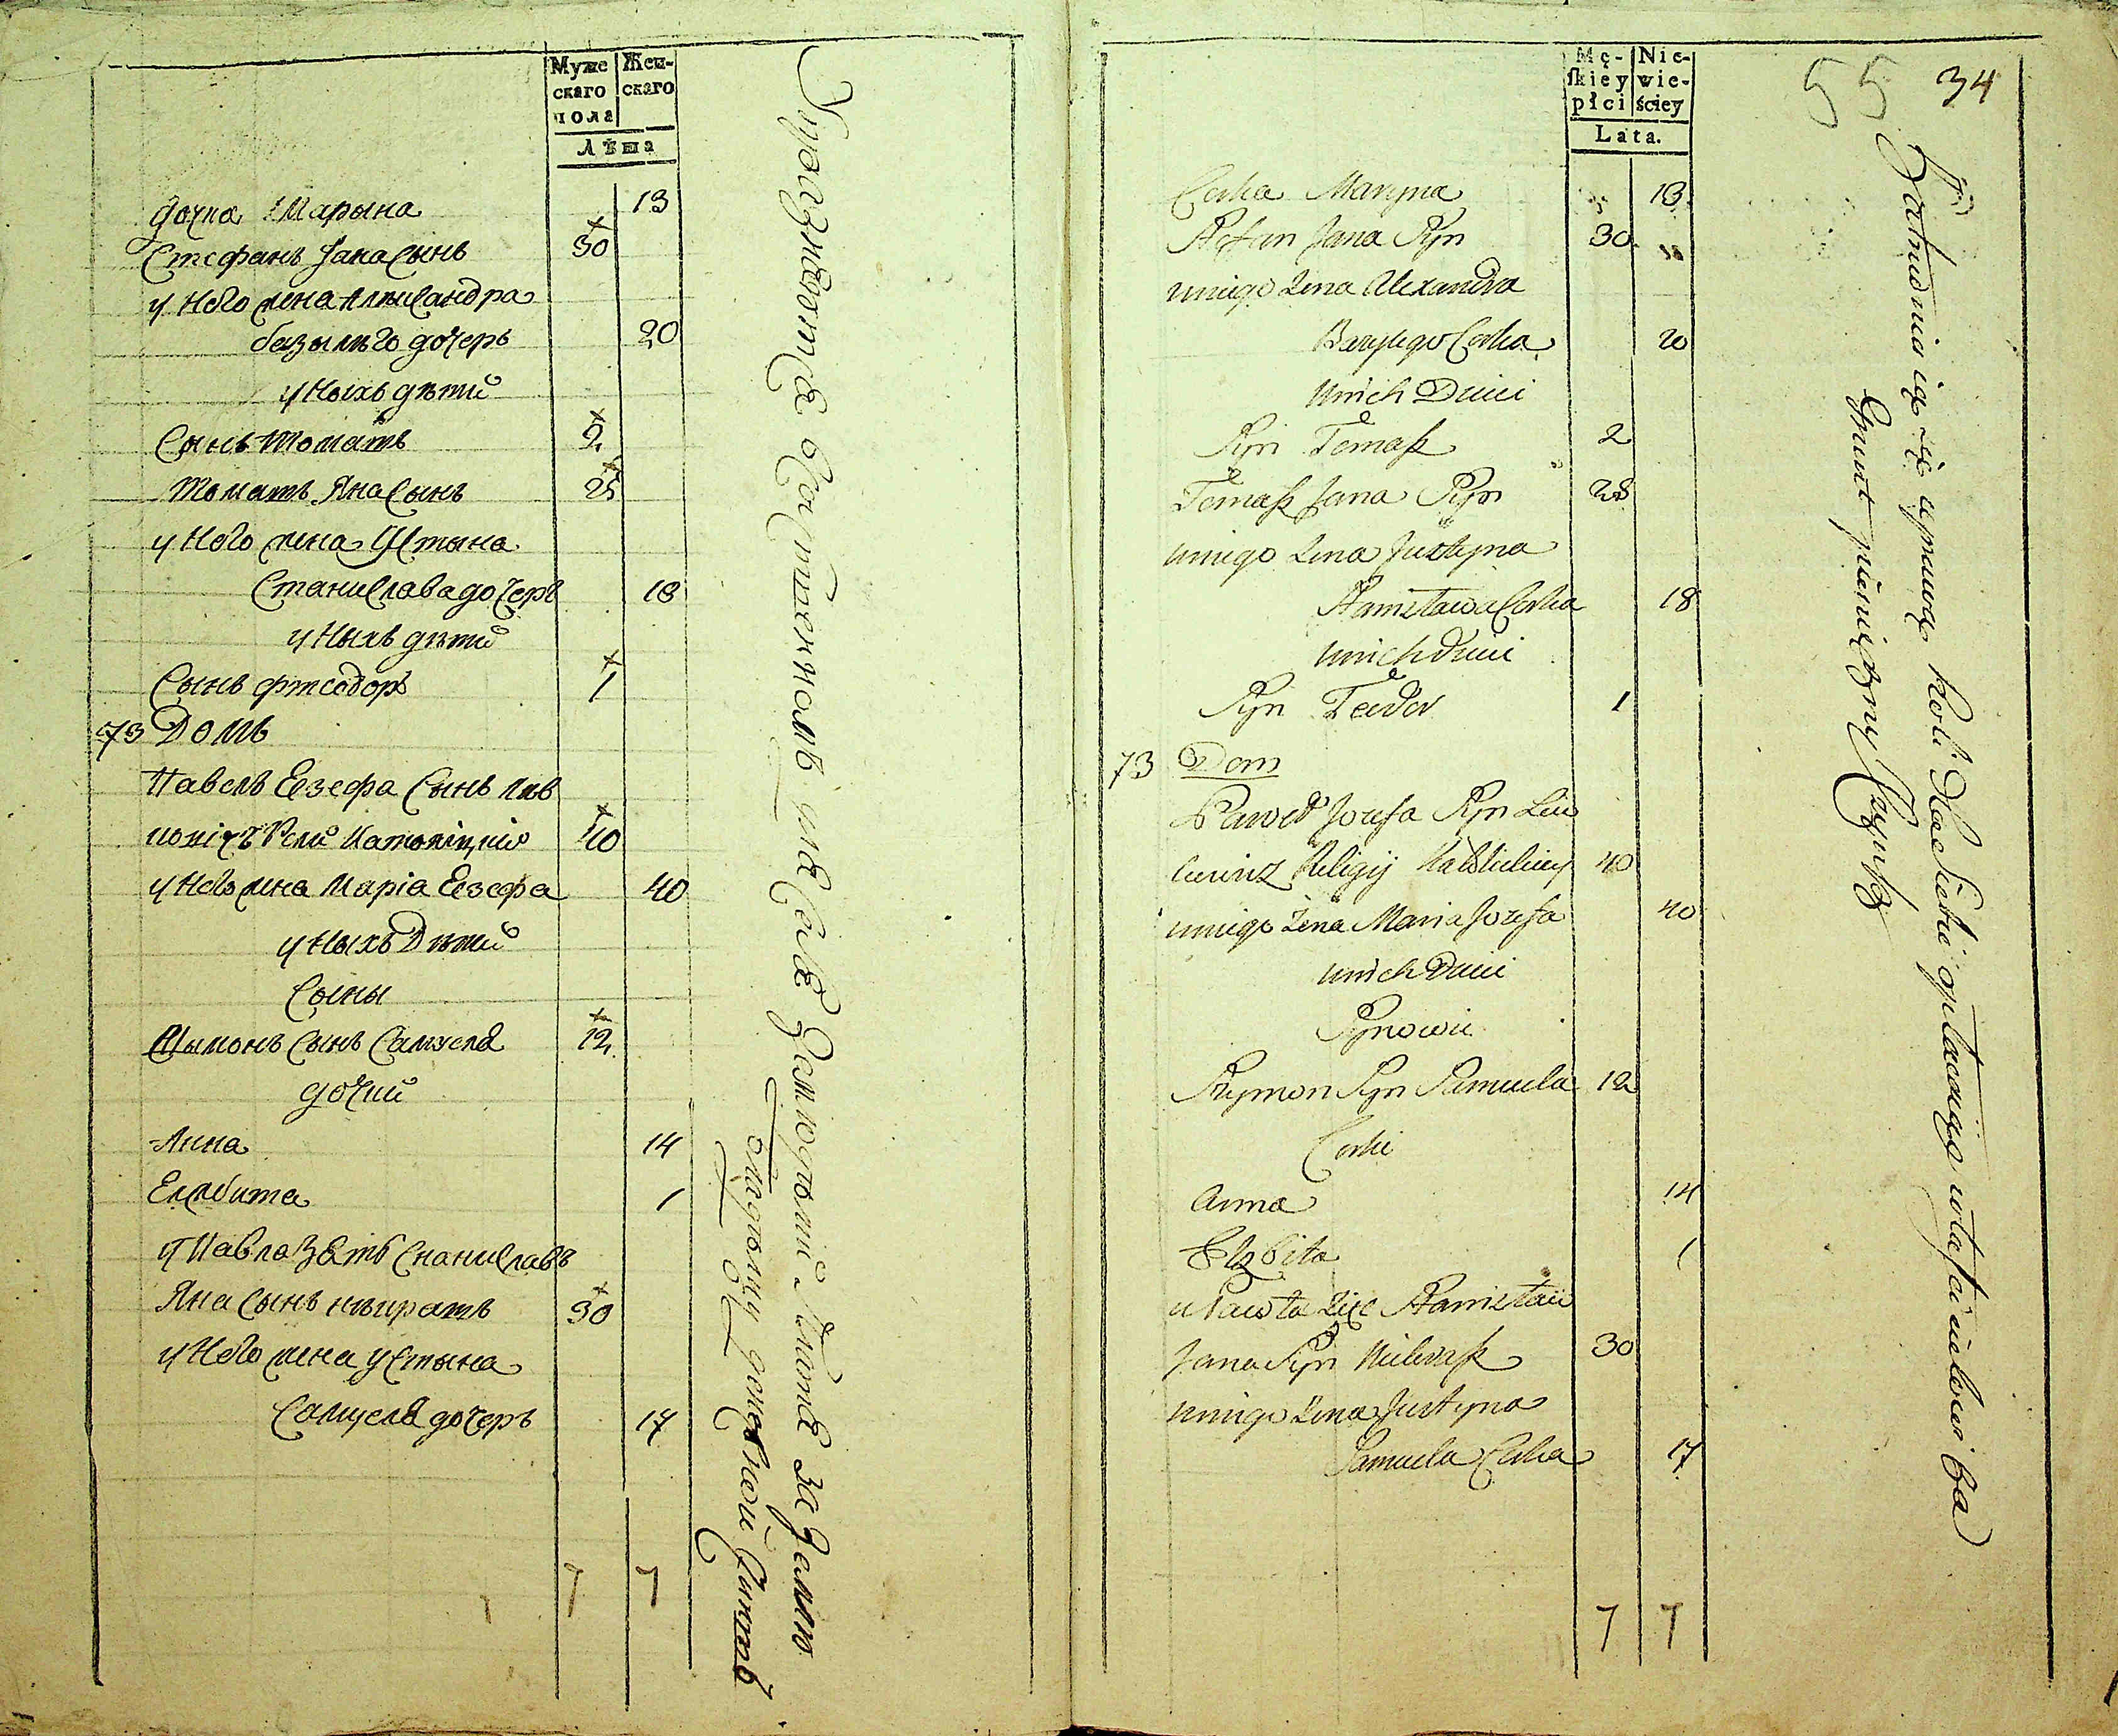 Муже
скаго
пола
Жен-
скаго
Лѣта
дочка Марына 13
Стефанъ Яна Сынъ 30
у Него жена Александра
базылего дочеръ 20
у Ныхъ дѣти
Сынъ Томашъ 2
Томашъ Яна Сынъ 25
у Него жена Юстына
Станислава дочеръ 18
у Ныхъ дѣти
Сынъ фтеодоръ 1
73 Домъ
Павелъ Еезефа Сынъ Лав
40
у Него жена Маріа Еезефа 40
у Ныхъ Дѣти
Сыны
Шымонъ Сынъ Самуеля 12
дочки
Анна 14
Елжбита 1
у Павла Зять Сnаниславъ
Яна Сынъ 30
у Него жена устына
Самуеля дочеръ 17
7 7
за Землю
Mę-
skiey
płci
Nie-
wie-
ściey
Lata.
55 34
Corka Maryna 13
Stefan Jana Syn 30
uniego Zona Alexandra
Bazylego Corka 20
unich Dzieci
Syn Tomasz 2
Tomasz Jana Syn 25
uniego Zona Justyna
Stanisława Corka 18
unich dzieci
Syn Teodor 1
73 Dom
Paweł Jozefa Syn
Religij Katolickiey 40
unigo Zona Maria Jozefa 40
unich Dzieci
Synowie
Szymon Syn Samuela 12
Corki
Anna 14
Elzbita 1
u Pawła Zięć Stanisław
Jana Syn 30
unigo Zona Justyna
Samuela Corka 17
7 7
Zatrudniaią się uprawą Roli
Grunt pieniężny Czynsz